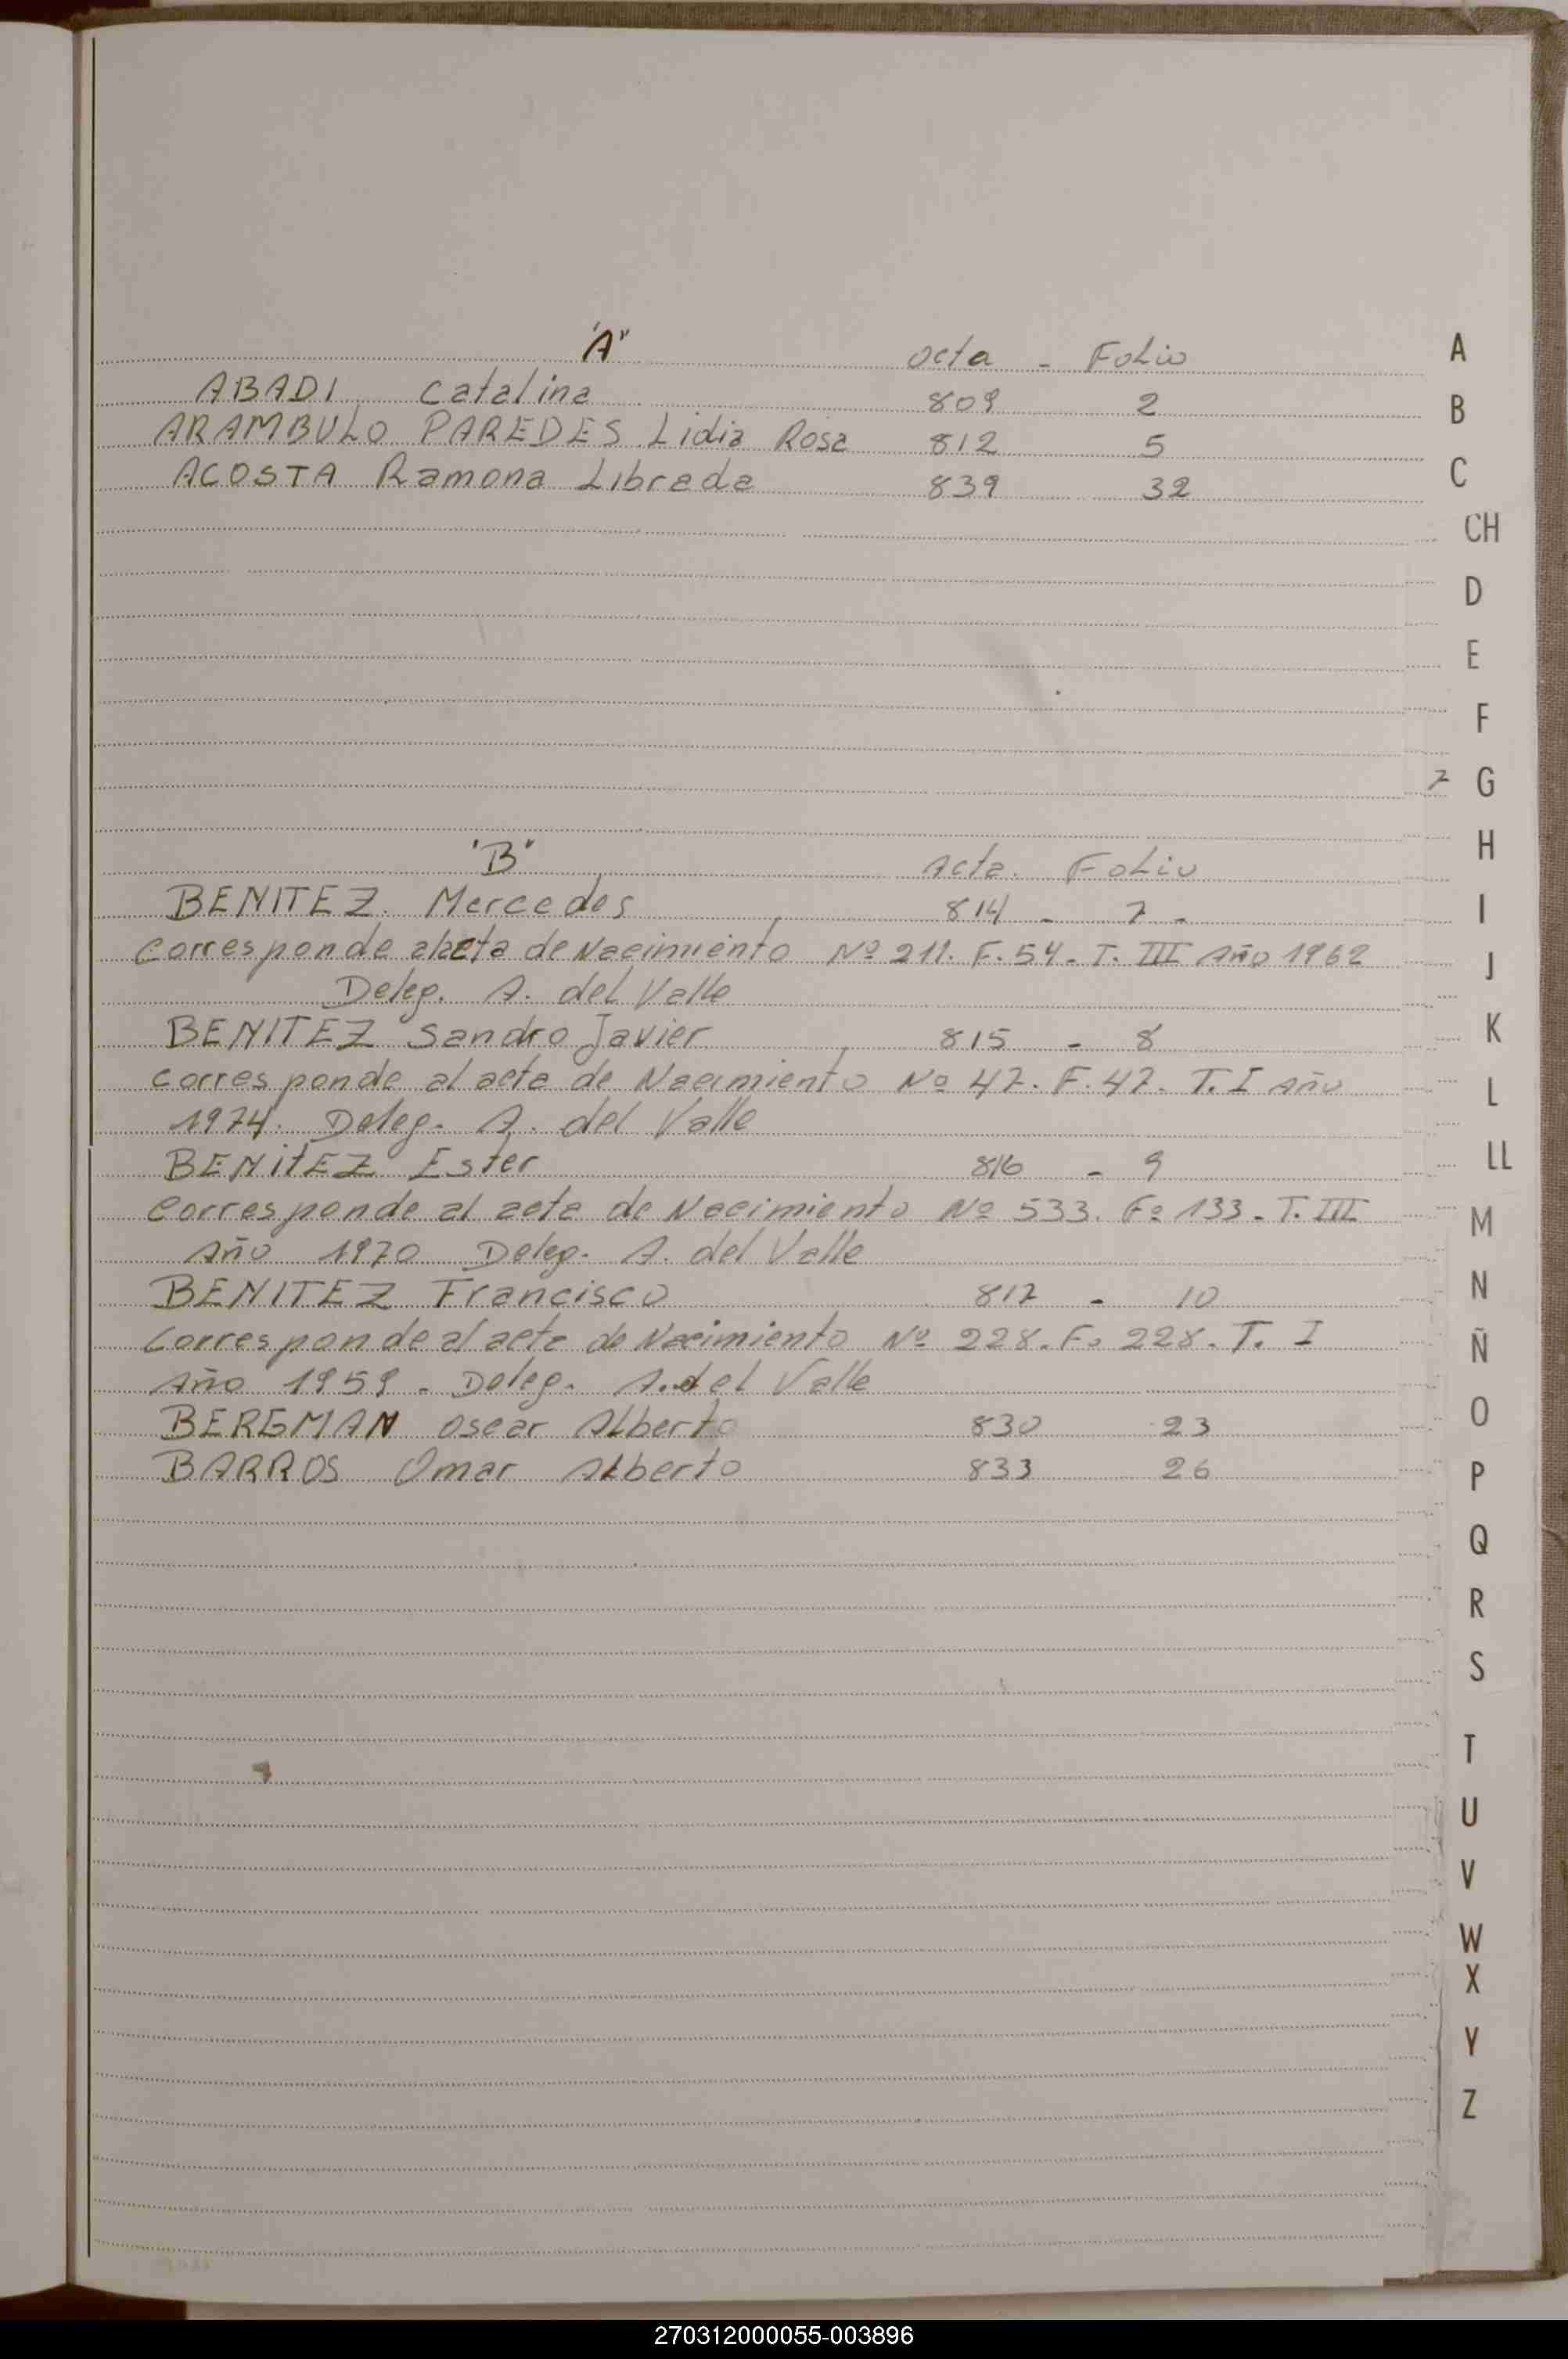 "A" Acta - Folio
ABADI Catalina 809 2
ARAMBULO PAREDES Lidia Rosa 812 5
ACOSTA Ramona Librada 839 32
"B" Acta. Folio
BENITEZ. Mercedes 814 - 7 -
Corresponde al acta de Nacimiento Nº 211. F. 54. T. III Año 1962
Deleg. A. del Valle
BENITEZ Sandro Javier 815 - 8
Corresponde al acta de Nacimiento Nº 47. F. 47. T. I Año
1974. Deleg. A. del Valle
BENITEZ Ester 816 - 9
Corresponde al acta de Nacimiento Nº 533. Fº 133 - T. III
Año 1970 Deleg. A. del Valle
BENITEZ Francisco 817 - 10
Corresponde al acta de Nacimiento Nº 228. Fº 228. T. I
Año 1959 - Deleg. A. del Valle
BERGMAN Oscar Alberto 830 23
BARROS Omar Alberto 833 26
A
B
C
CH
D
E
F
G
H
I
J
K
L
LL
M
N
Ñ
O
P
Q
R
S
T
U
V
W
X
Y
Z
270312000055-003896